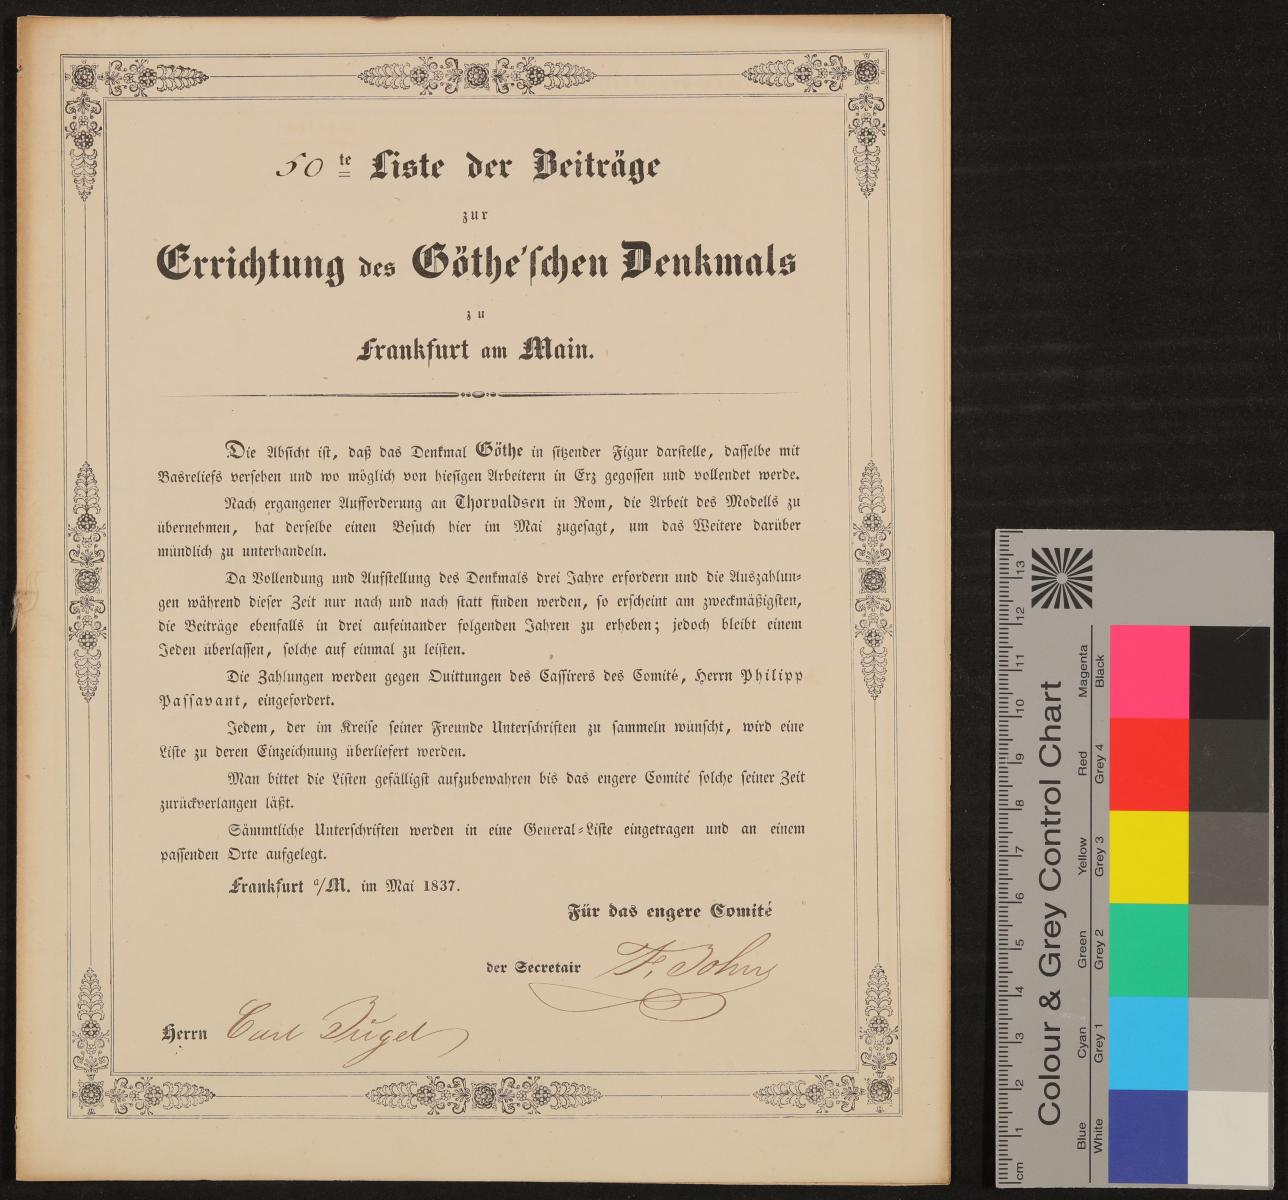 50te Liste der Beiträge
zur
Errichtung des Göthe'schen Denkmals
zu
Frankfurt am Main.
Die Absicht ist, daß das Denkmal Göthe in sitzender Figur darstelle, dasselbe mit
Basreliefs versehen und wo möglich von hiesigen Arbeitern in Erz gegossen und vollendet werde.
Nach ergangener Aufforderung an Thorvaldsen in Rom, die Arbeit des Modells zu
übernehmen, hat derselbe einen Besuch hier im Mai zugesagt, um das Weitere darüber
mündlich zu unterhandeln.
Da Vollendung und Aufstellung des Denkmals drei Jahre erfordern und die Auszahlun-
gen während dieser Zeit nur nach und nach statt finden werden, so erscheint am zweckmäßigsten,
die Beiträge ebenfalls in drei aufeinander folgenden Jahren zu erheben; jedoch bleibt einem
Jeden überlassen, solche auf einmal zu leisten.
Die Zahlungen werden gegen Quittungen des Cassirers des Comité, Herrn Philipp
Passavant, eingefordert.
Jedem, der im Kreise seiner Freunde Unterschriften zu sammeln wünscht, wird eine
Liste zu deren Einzeichnung überliefert werden.
Man bittet die Listen gefälligst aufzubewahren bis das engere Comité solche seiner Zeit
zurückverlangen läßt.
Sämmtliche Unterschriften werden in eine General-Liste eingetragen und an einem
passenden Orte aufgelegt.
Frankfurt a/M. im Mai 1837.
Für das engere Comité
der Secretair F. John
Herrn Carl Jügel
Colour & Grey Control Chart
Blue Cyan Green Yellow Red Magenta
White Grey 1 Grey 2 Grey 3 Grey 4 Black
cm 1 2 3 4 5 6 7 8 9 10 11 12 13